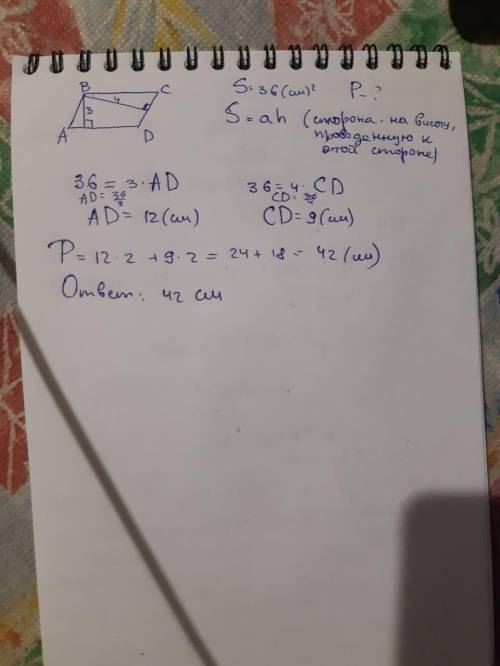 B C
4
3
A D
S = 36 (см)² P - ?
S = ah (сторона · на высоту,
проведенную к
этой стороне)
36 = 3 · AD 36 = 4 · CD
AD = 36/3 CD = 36/4
AD = 12 (см) CD = 9 (см)
P = 12 · 2 + 9 · 2 = 24 + 18 = 42 (см)
Ответ: 42 см